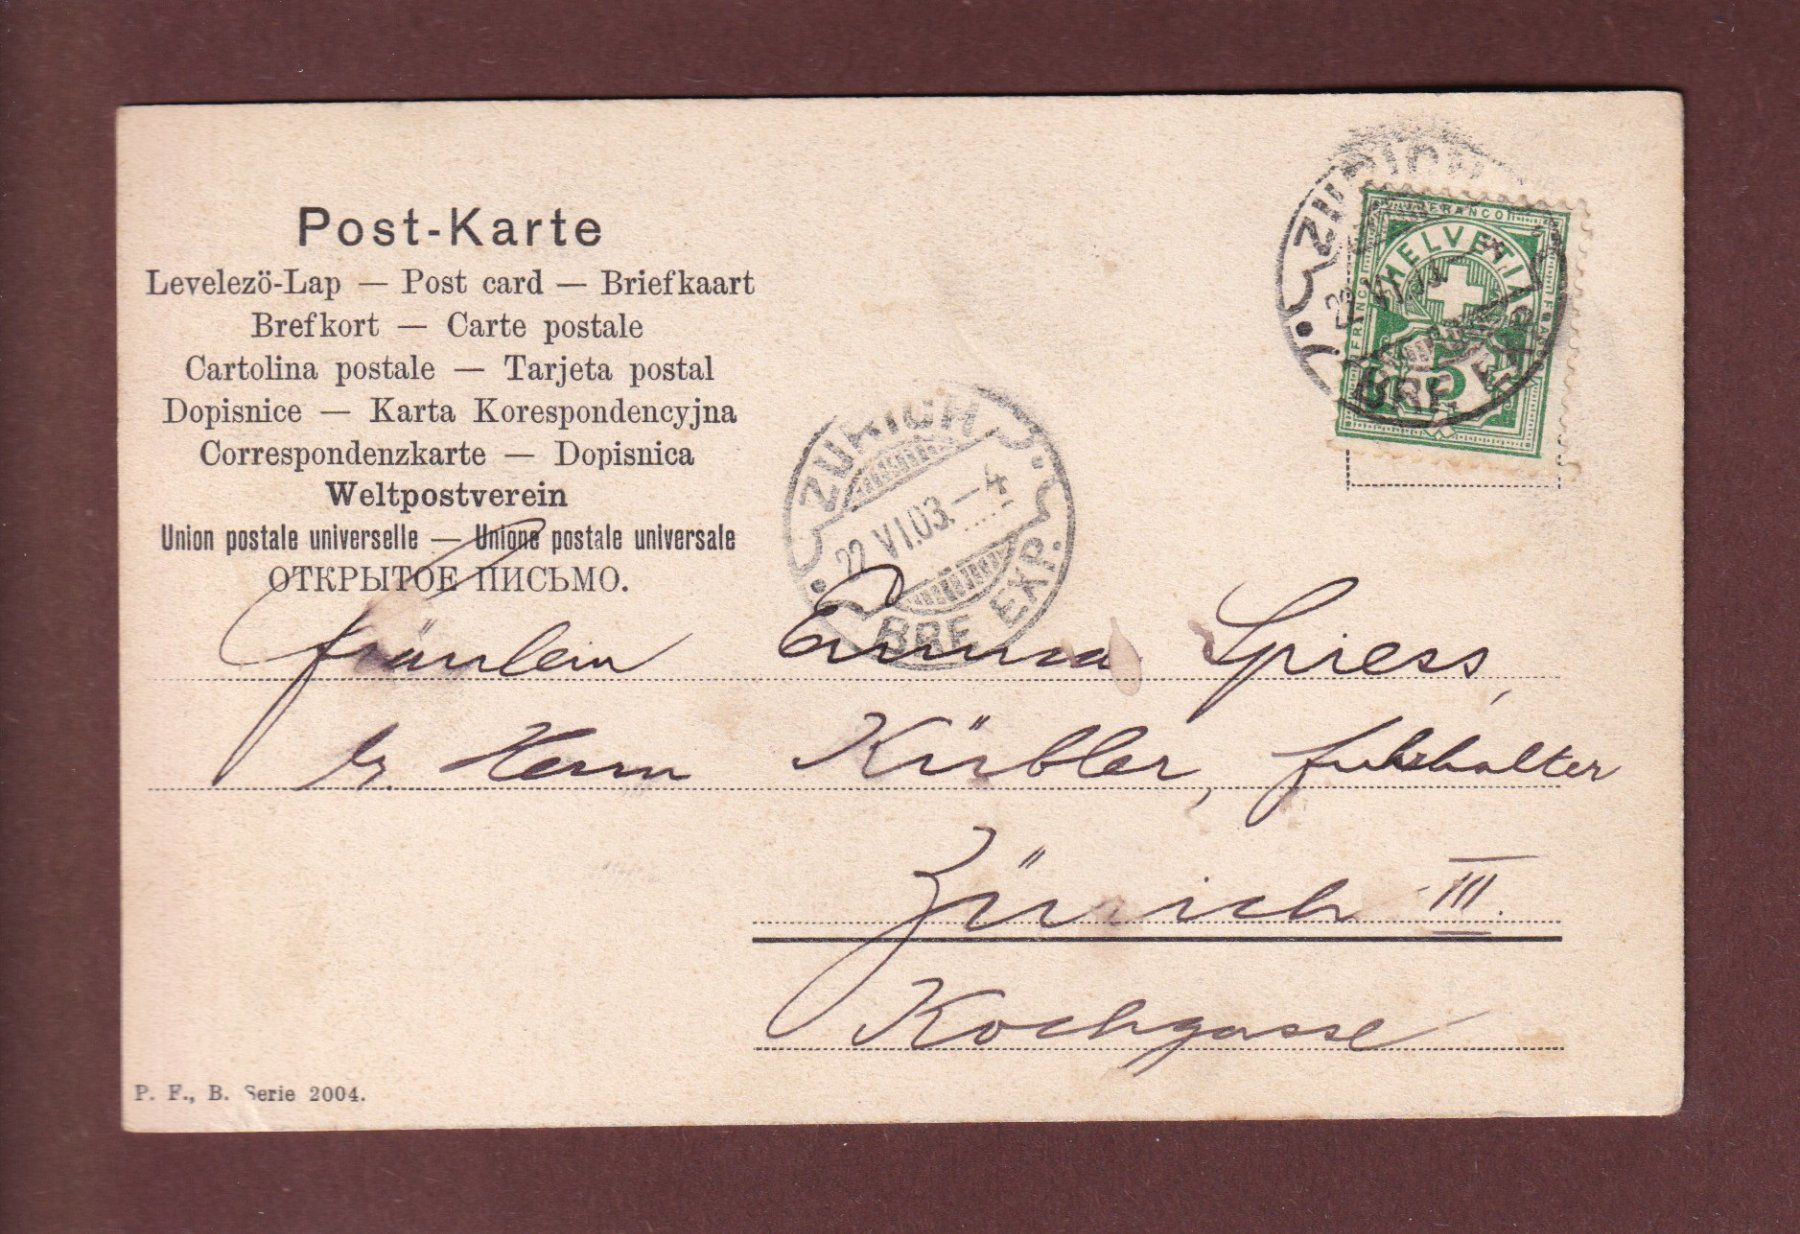 Post-Karte
Levelezö-Lap — Post card — Briefkaart
Brefkort — Carte postale
Cartolina postale — Tarjeta postal
Dopisnice — Karta Korespondencyjna
Correspondenzkarte — Dopisnica
Weltpostverein
Union postale universelle — Unione postale universale
ОТКРЫТОЕ ПИСЬМО.
ZÜRICH
22 VI.03.–4
BRF. EXP.
ZÜRICH
BRF. EXP.
FRANCO
HELVETIA
FRANCO
5
Fräulein Emma Spiess,
br. Herrn Kübler, Fuhrhalter
Zürich III.
Kochgasse
P. F., B. Serie 2004.